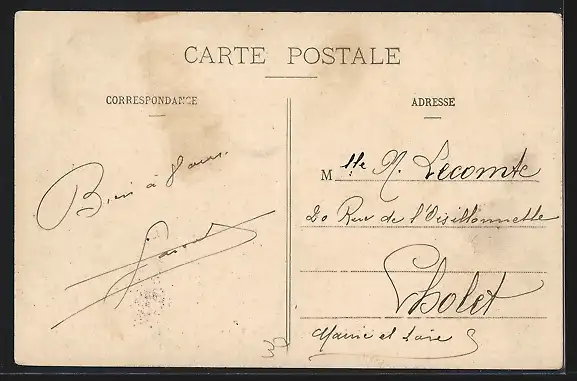 CARTE POSTALE
CORRESPONDANCE
ADRESSE
Bien à Vous.
Mlle M. Lecomte
20 Rue de l'Oisillonnette
Cholet
Maine et Loire